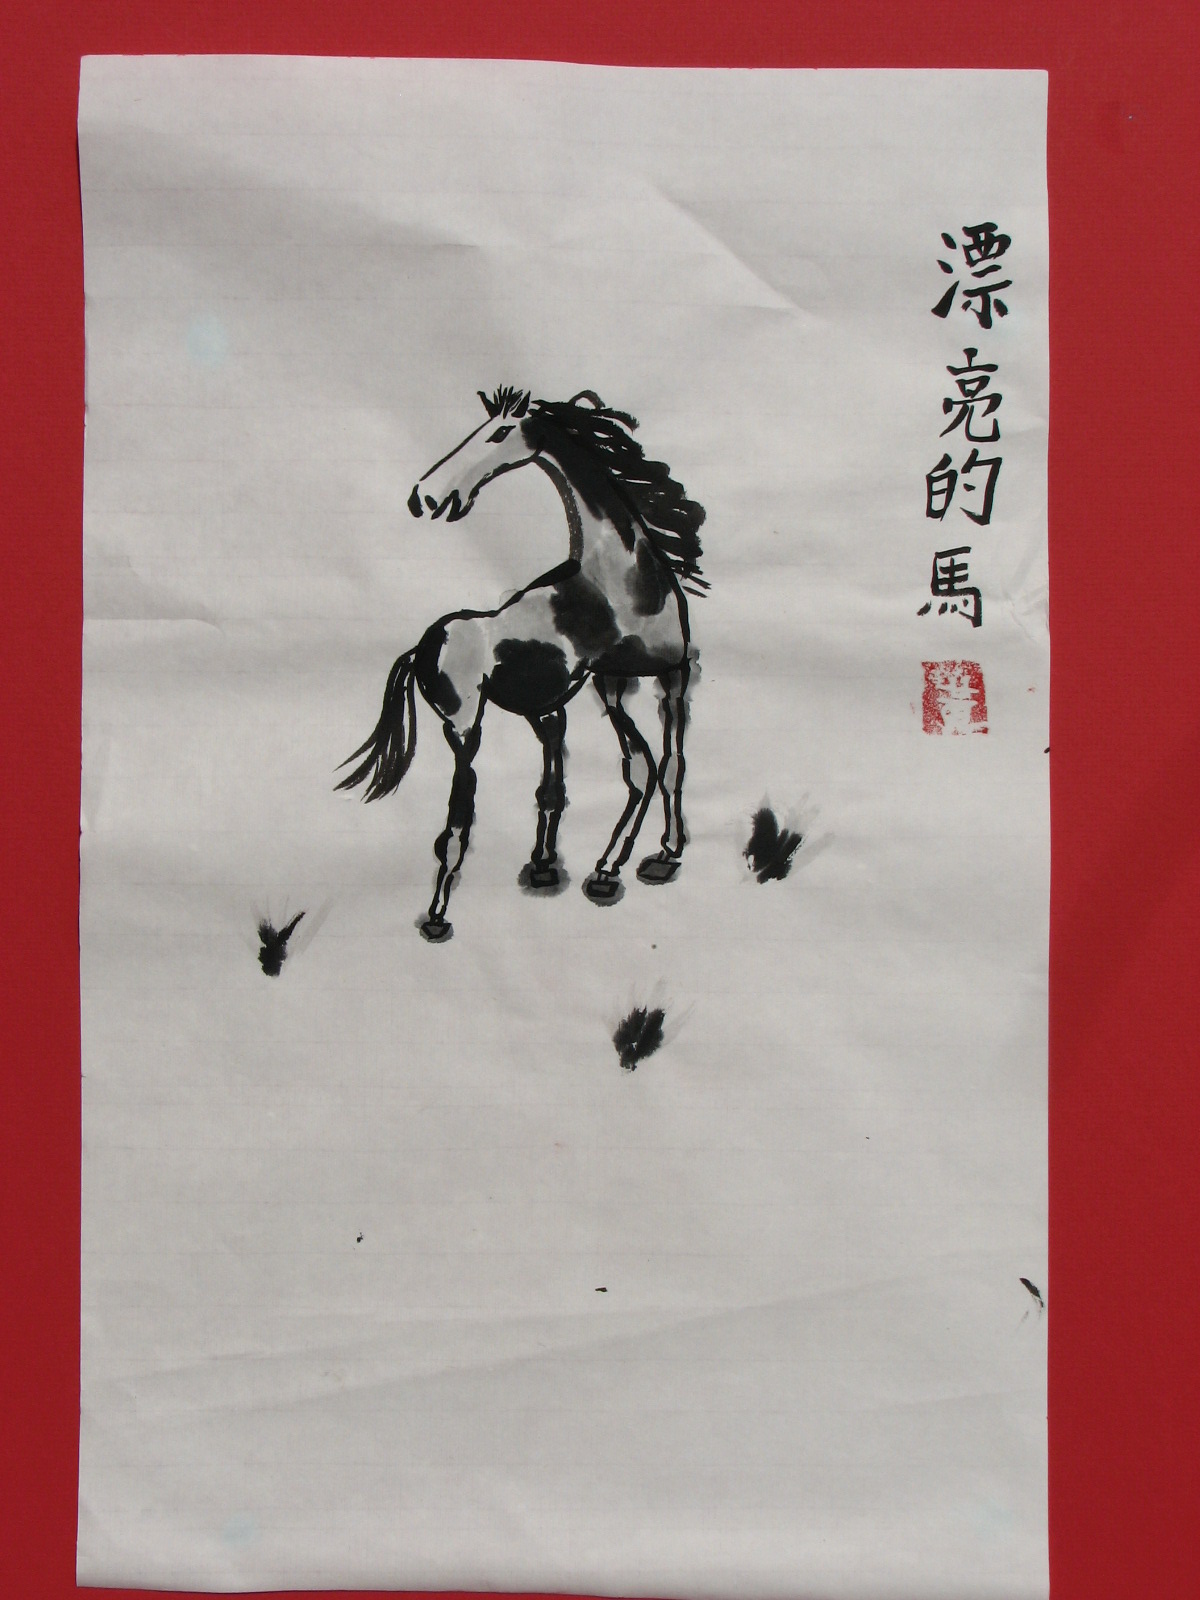 漂亮的馬